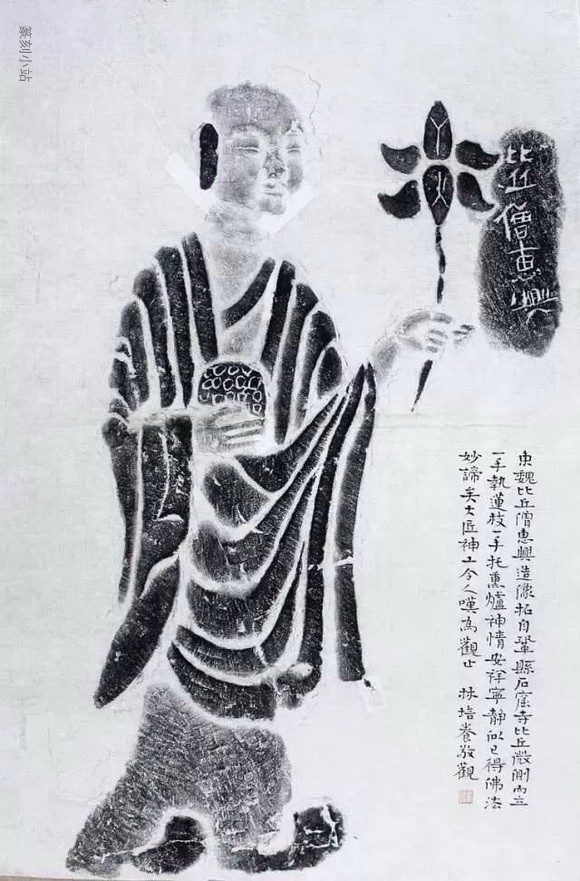 篆刻小站
比丘僧惠興
東魏比丘僧惠興造像拓自鞏縣石窟寺比丘微側而立
一手執蓮枝一手托熏爐神情安祥寧靜似已得佛法
妙諦矣大匠神工令人嘆為觀止 林培養敬觀